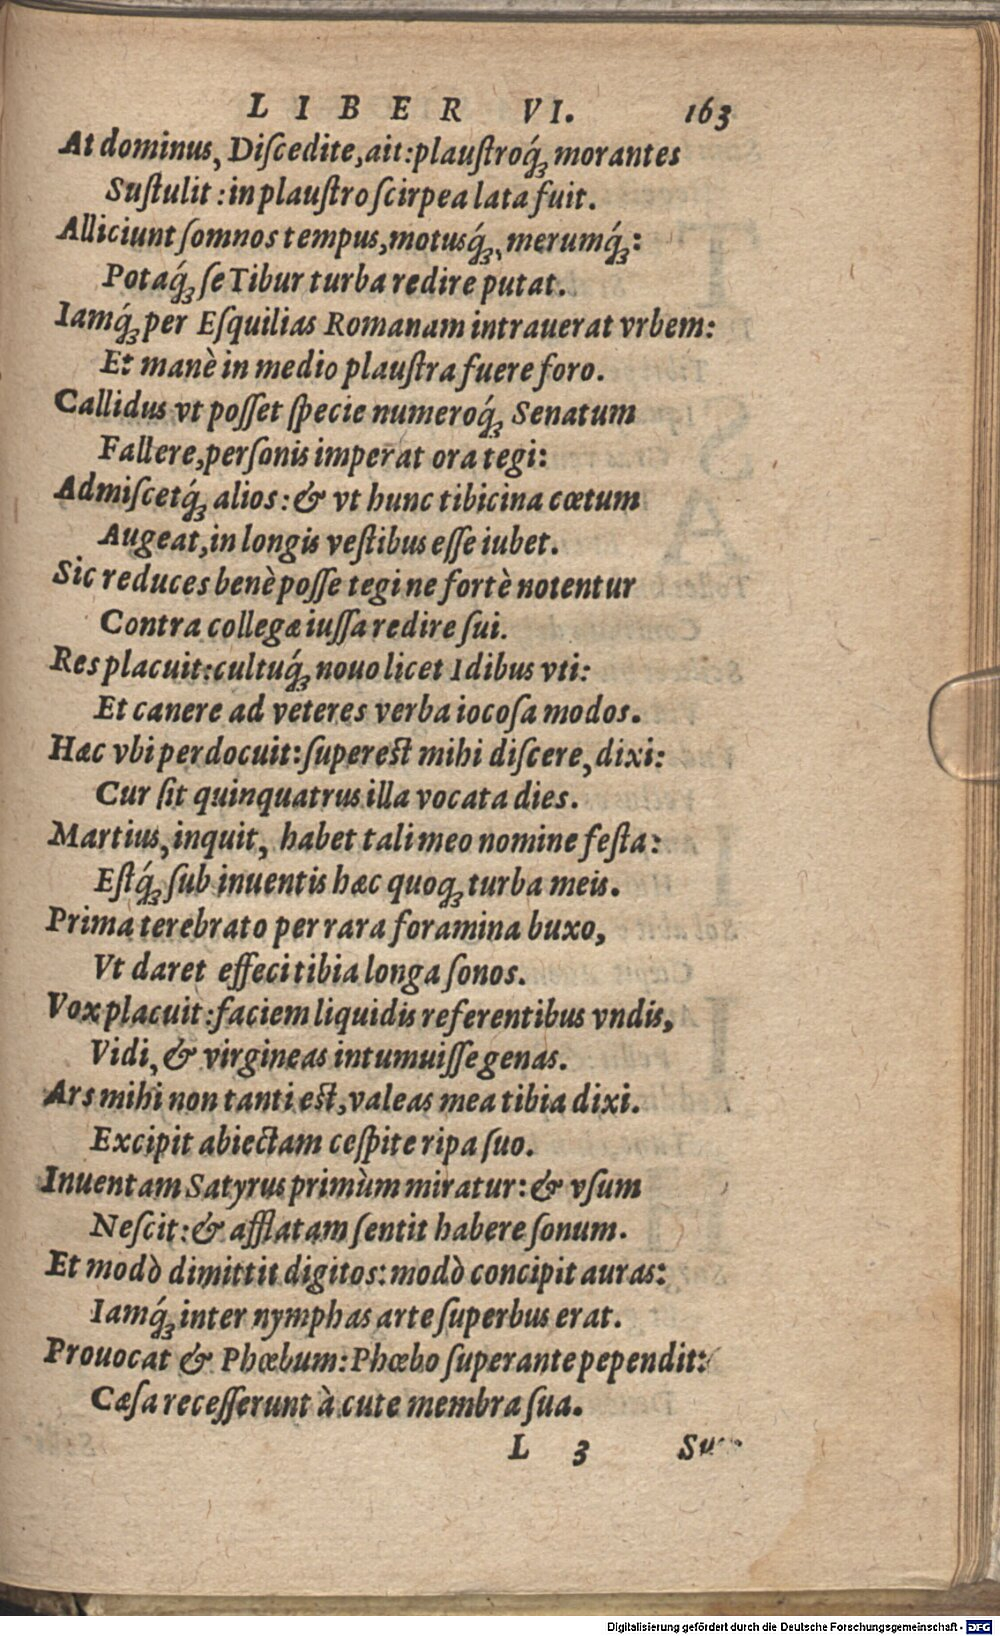 LIBER VI. 163
At dominus, Diſcedite, ait: plauſtroq́ꝫ morantes
Suſtulit: in plauſtro ſcirpea lata fuit.
Alliciunt ſomnos tempus, motusq́ꝫ, merumq́ꝫ:
Potaq́ꝫ ſe Tibur turba redire putat.
Iamq́ꝫ per Eſquilias Romanam intrauerat vrbem:
Et manè in medio plauſtra fuere foro.
Callidus vt poſſet ſpecie numeroq́ꝫ Senatum
Fallere, perſonis imperat ora tegi:
Admiſcetq́ꝫ alios: & vt hunc tibicina cœtum
Augeat, in longis veſtibus eſſe iubet.
Sic reduces benè poſſe tegi ne fortè notentur
Contra collegæ iuſſa redire ſui.
Res placuit: cultuq́ꝫ nouo licet Idibus vti:
Et canere ad veteres verba iocoſa modos.
Hæc vbi perdocuit: ſupereſt mihi diſcere, dixi:
Cur ſit quinquatrus illa vocata dies.
Martius, inquit, habet tali meo nomine feſta:
Eſtq́ꝫ ſub inuentis hæc quoqꝫ turba meis.
Prima terebrato per rara foramina buxo,
Vt daret effeci tibia longa ſonos.
Vox placuit: faciem liquidis referentibus vndis,
Vidi, & virgineas intumuiſſe genas.
Ars mihi non tanti eſt, valeas mea tibia dixi.
Excipit abiectam ceſpite ripa ſuo.
Inuentam Satyrus primùm miratur: & vſum
Neſcit: & afflatam ſentit habere ſonum.
Et modò dimittit digitos: modò concipit auras:
Iamq́ꝫ inter nymphas arte ſuperbus erat.
Prouocat & Phœbum: Phœbo ſuperante pependit:
Cæſa receſſerunt à cute membra ſua.
L 3
Digitalisierung gefördert durch die Deutsche Forschungsgemeinschaft - DFG